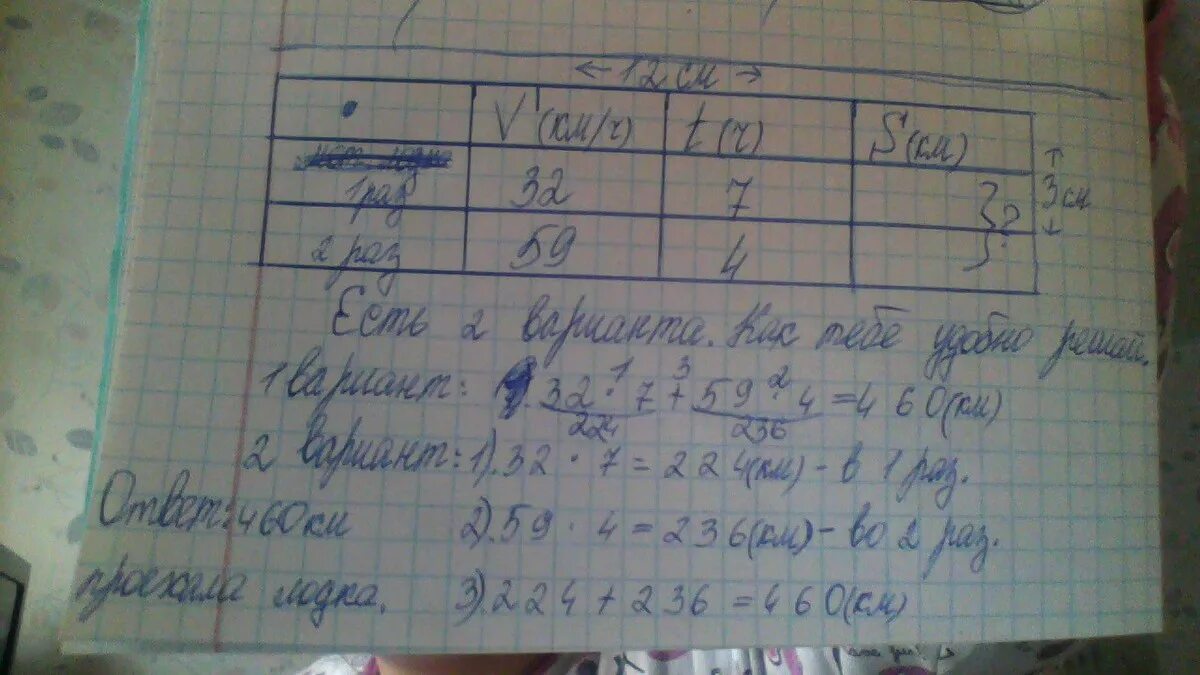 ← 12 см →
V (км/ч) t (ч) S (км)
1 раз 32 7 } ? ↑ 3 см ↓
2 раз 59 4
Есть 2 варианта. Как тебе удобно решай.
1 вариант: 32 · 7 + 59 · 4 = 460 (км)
1 3 2
224 236
2 вариант: 1). 32 · 7 = 224 (км) - в 1 раз.
Ответ: 460 км 2). 59 · 4 = 236 (км) - во 2 раз.
проехала лодка. 3). 224 + 236 = 460 (км)